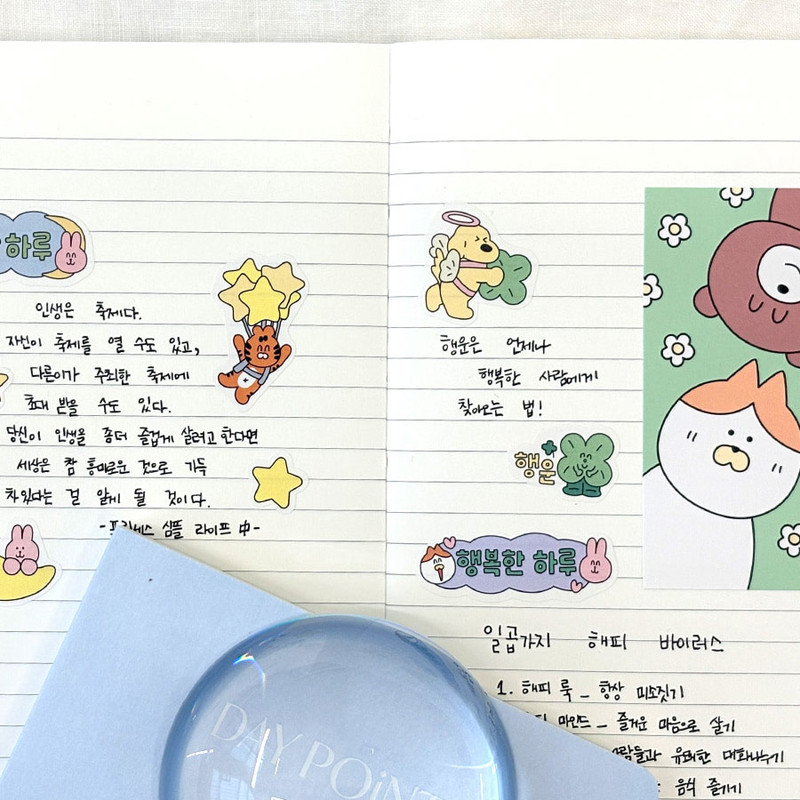 하루
인생은 축제다.
자신이 축제를 열 수도 있고,
다른이가 주최한 축제에
초대 받을 수도 있다.
당신이 인생을 좀더 즐겁게 살려고 한다면
세상은 참 흥미로운 것으로 가득
차있다는 걸 알게 될 것이다.
-프린세스 심플 라이프 中-
행운은 언제나
행복한 사람에게
찾아오는 법!
행운
행복한 하루
일곱가지 해피 바이러스
1. 해피 룩 _ 항상 미소짓기
마인드 _ 즐거운 마음으로 살기
사람들과 유쾌한 대화나누기
음식 즐기기
DAY POiNT